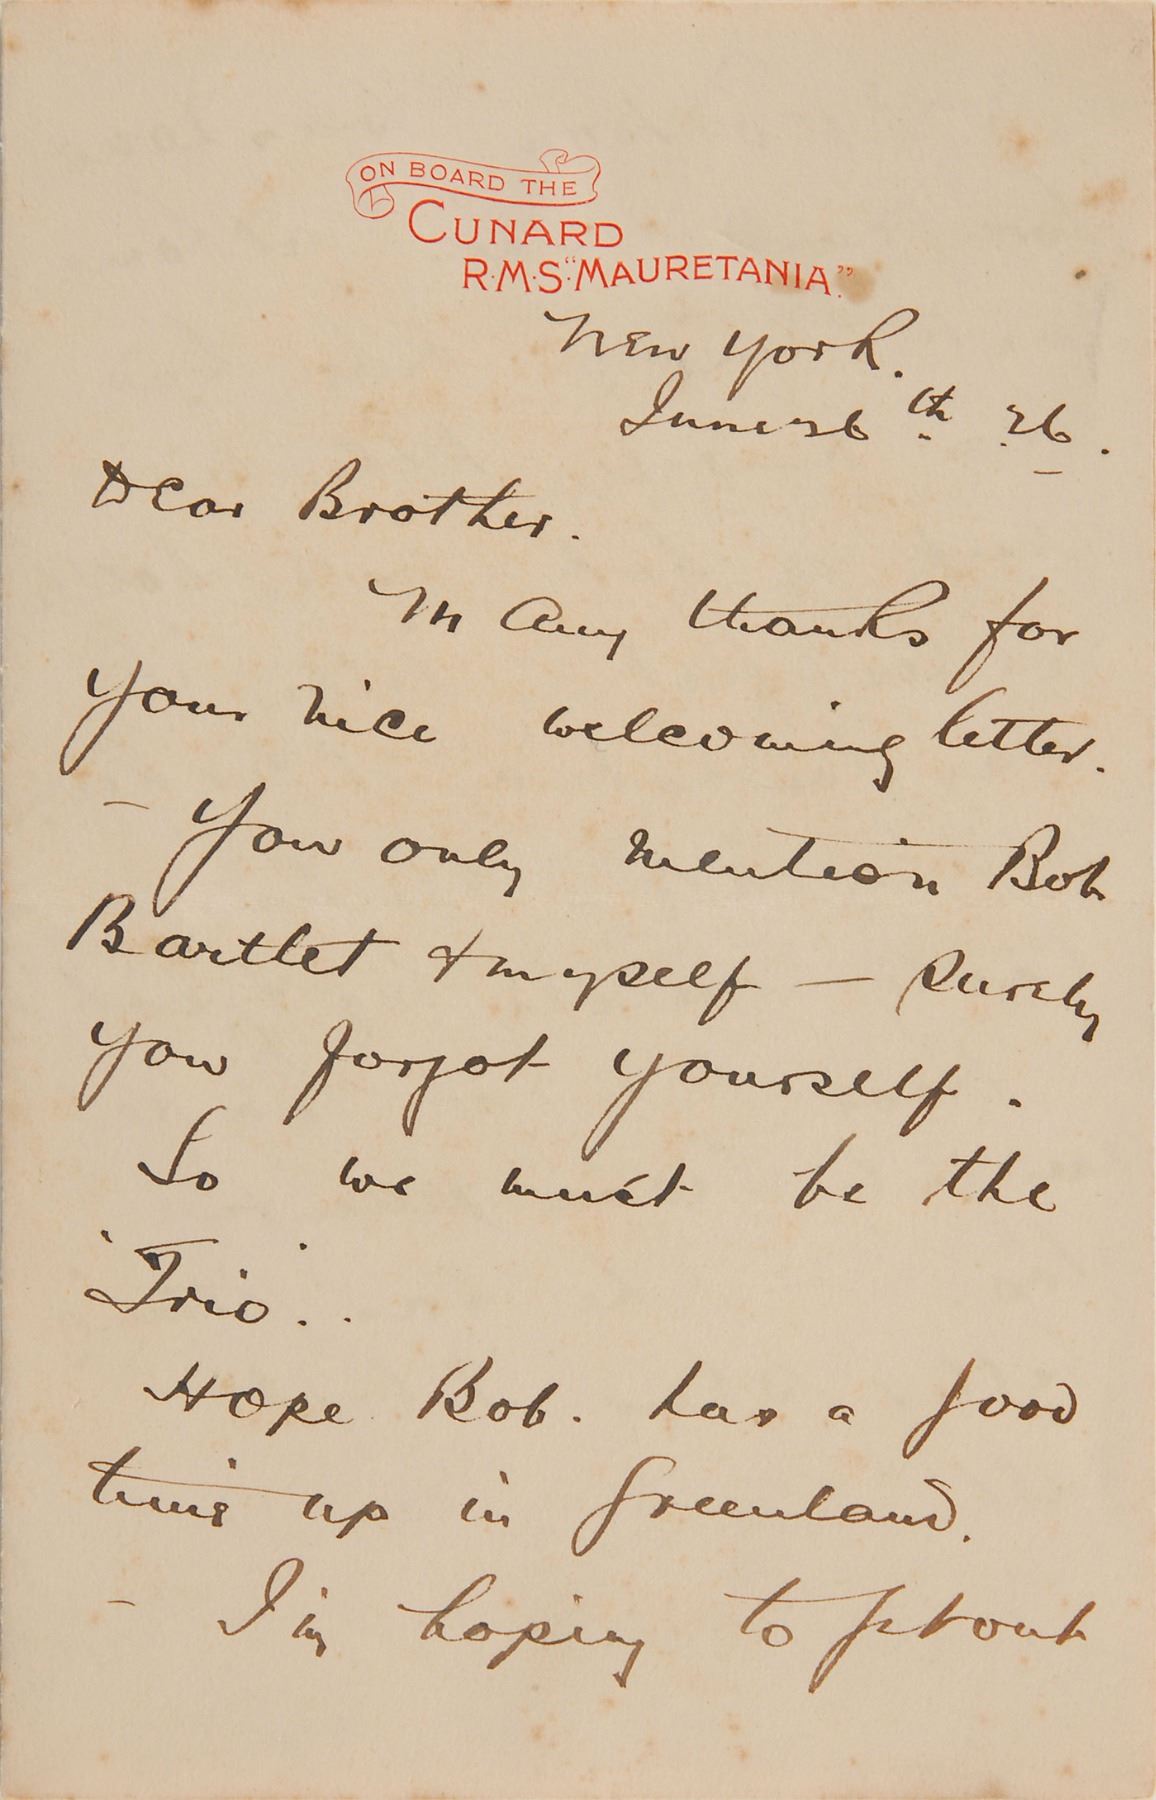 ON BOARD THE
CUNARD
R·M·S·"MAURETANIA."
New York.
June 26th. 26.
Dear Brother.
Many thanks for
your nice welcoming letter.
– You only mention Bob
Bartlet & myself — surely
you forgot yourself.
So we must be the
'Trio'..
Hope Bob. has a good
time up in Greenland.
– I'm hoping to get out